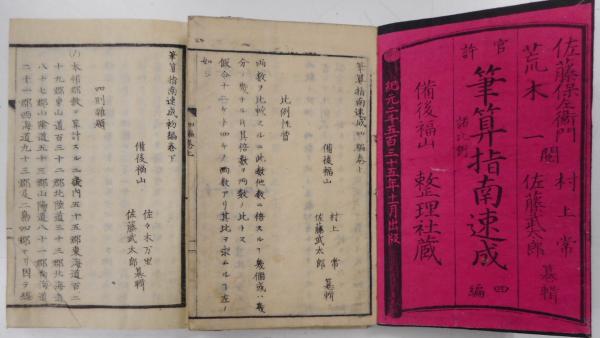 佐藤保左衛門 閲
荒木一
村上常
佐藤武太郎 纂輯
官許
筆算指南速成 四編
諸比例
備後福山 整理社蔵
紀元二千五百三十五年十一月出版
筆算指南速成四編巻上
備後福山 村上常
佐藤武太郎 纂輯
比例性質
両数ヲ比較スルニ此数他数ニ倍スル
分ノ幾ナルヤ其倍数ヲ両数ノ比トス
仮令ハ十二ト四キノ両数アリ其比ヲ求ムルコ左ノ
如シ
筆算指南速成初編巻下
備後福山 佐々木万里
佐藤武太郎 纂輯
四則雑題
本邦郡数ヲ算計スルニ畿内五十五郡東海道百二
十九郡東山道百三十二郡北陸道三十三郡北海道
八十七郡山陰道五十三郡山陽道八十一郡南海道
五十一郡西海道九十三郡